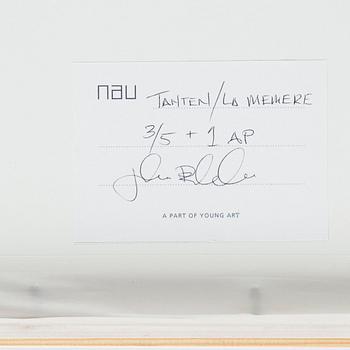 nau TANTEN/LA MEMERE
3/5 + 1 AP
A PART OF YOUNG ART